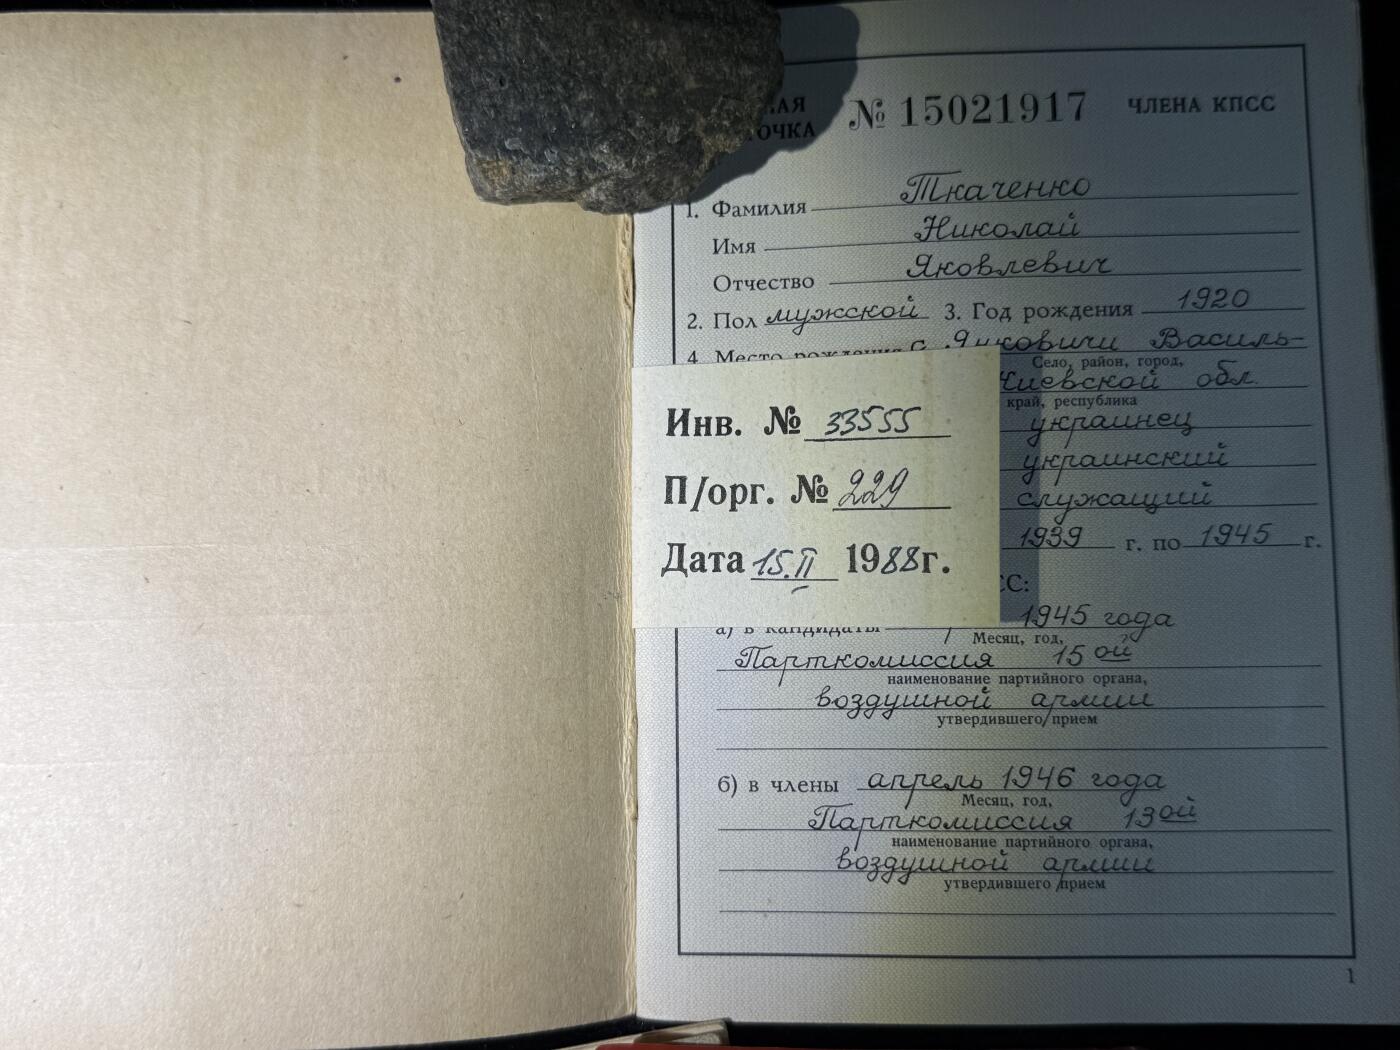 № 15021917 ЧЛЕНА КПСС
1. Фамилия Ткаченко
Имя Николай
Отчество Яковлевич
2. Пол мужской 3. Год рождения 1920
4. Место рождения с. Янковичи Василь-
Село, район, город,
Киевской обл.
край, республика
украинец
украинский
служащий
1939 г. по 1945 г.
Инв. № 33555
П/орг. № 229
Дата 15.II 1988г.
а) в кандидаты 1945 года
Месяц, год,
Парткомиссия 15ой
наименование партийного органа,
воздушной армии
утвердившего прием
б) в члены апрель 1946 года
Месяц, год,
Парткомиссия 13ой
наименование партийного органа,
воздушной армии
утвердившего прием
1